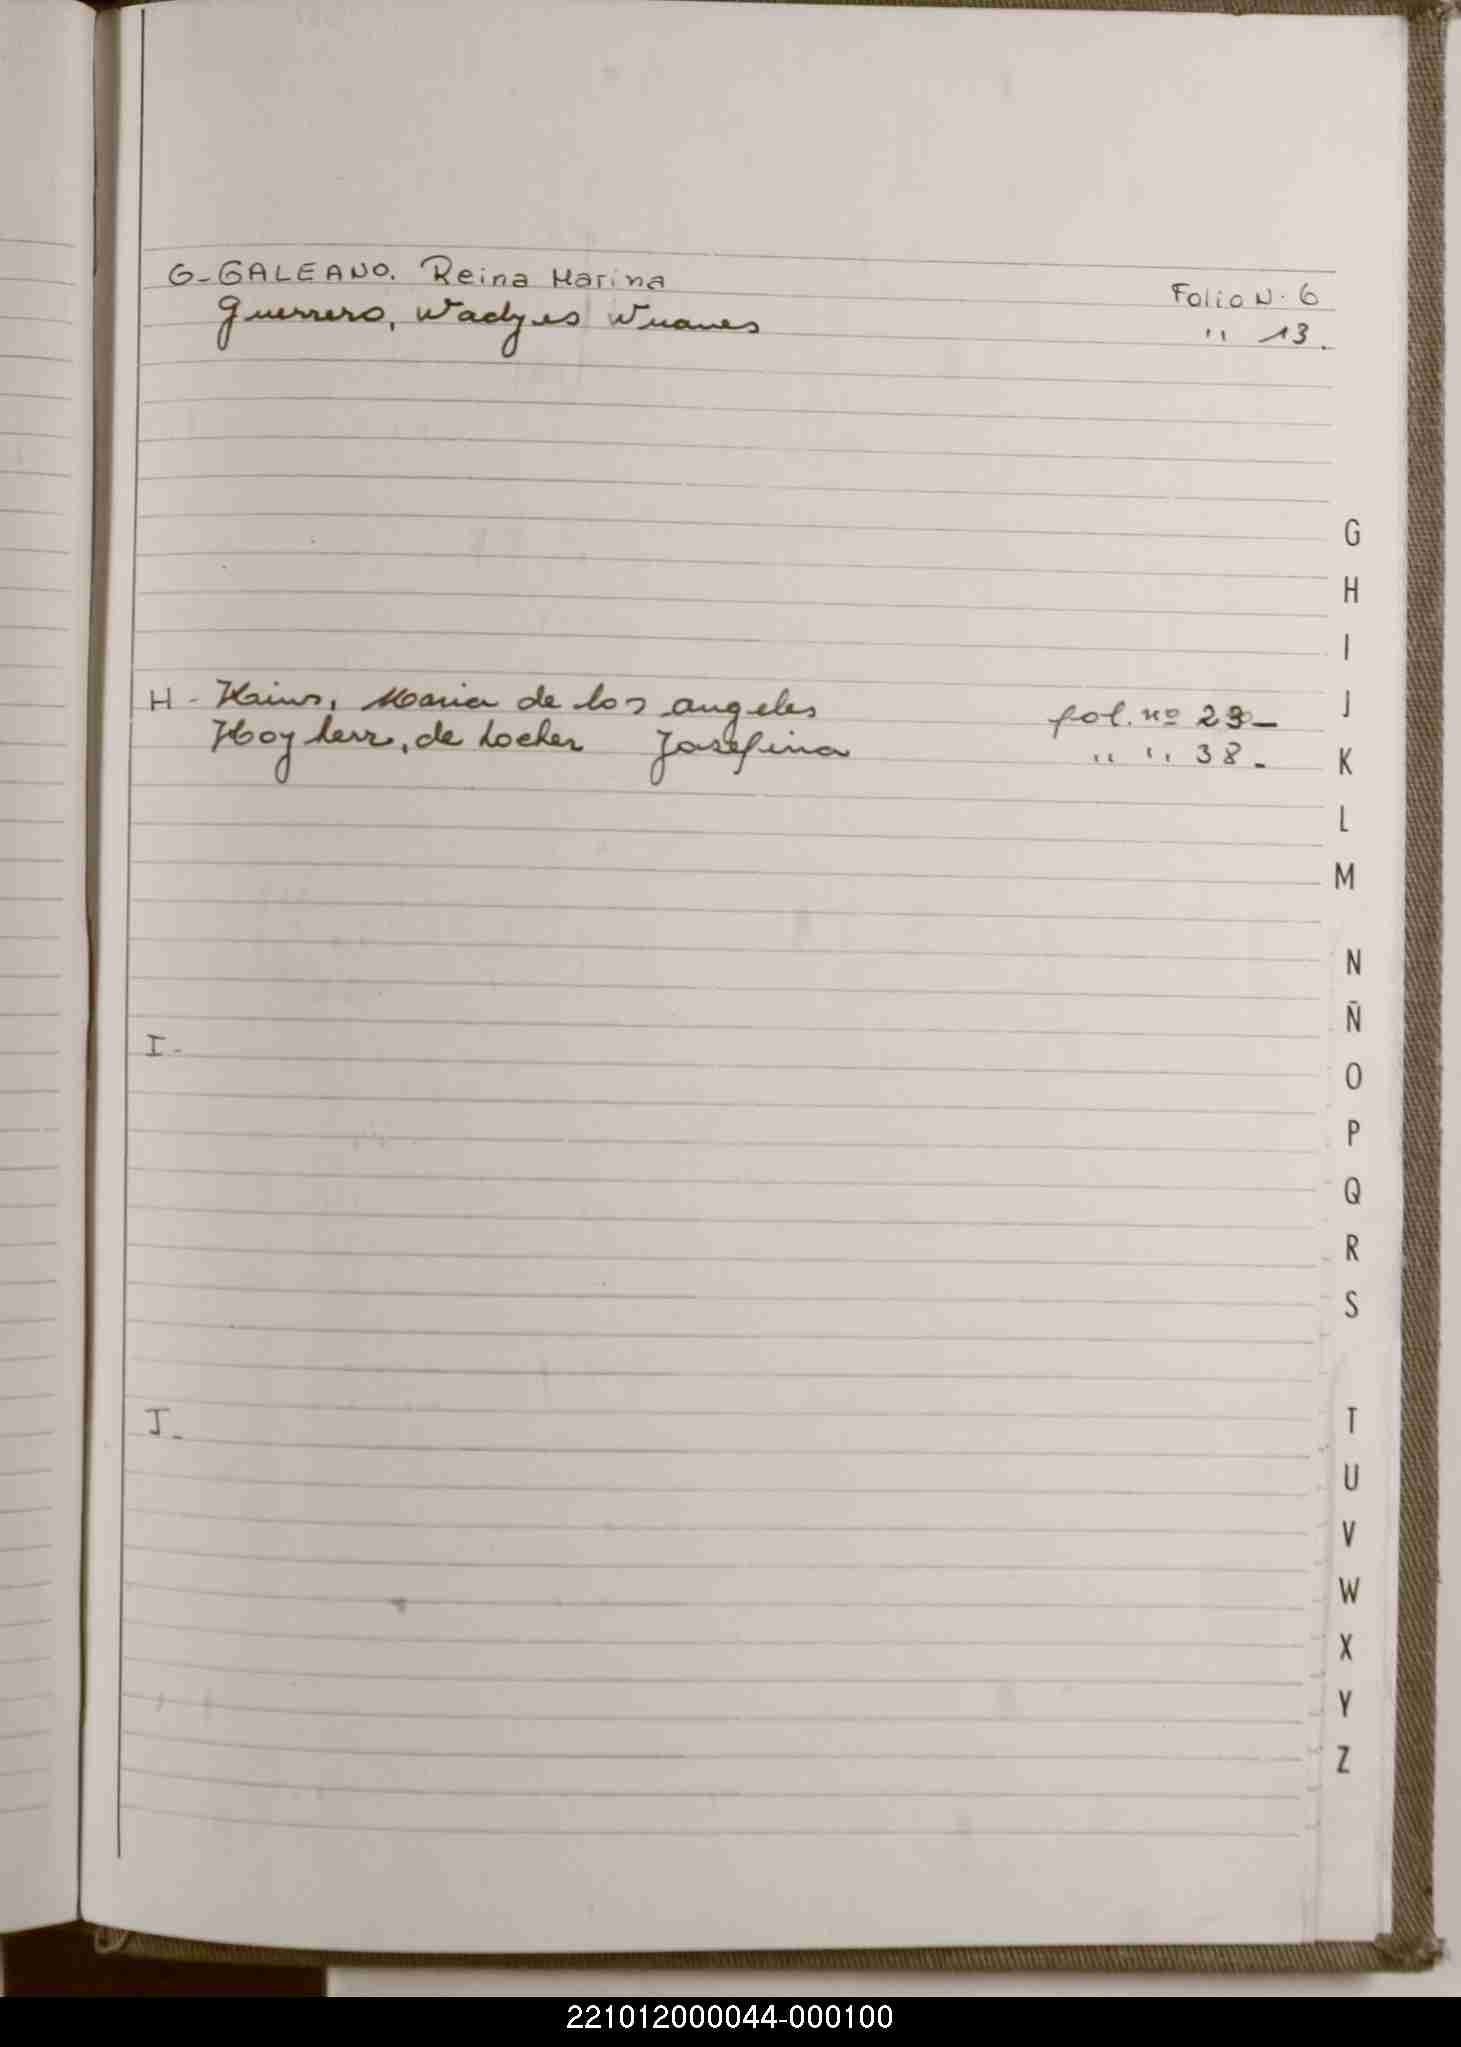 G-GALEANO. Reina Marina Folio N. 6
Guerrero, Wadyes Wuanes " 13.
H- Hains, Maria de los angeles fol. nº 29-
Hoyherr, de Locher Josefina " " 38.-
I-
J-
G
H
I
J
K
L
M
N
Ñ
O
P
Q
R
S
T
U
V
W
X
Y
Z
221012000044-000100